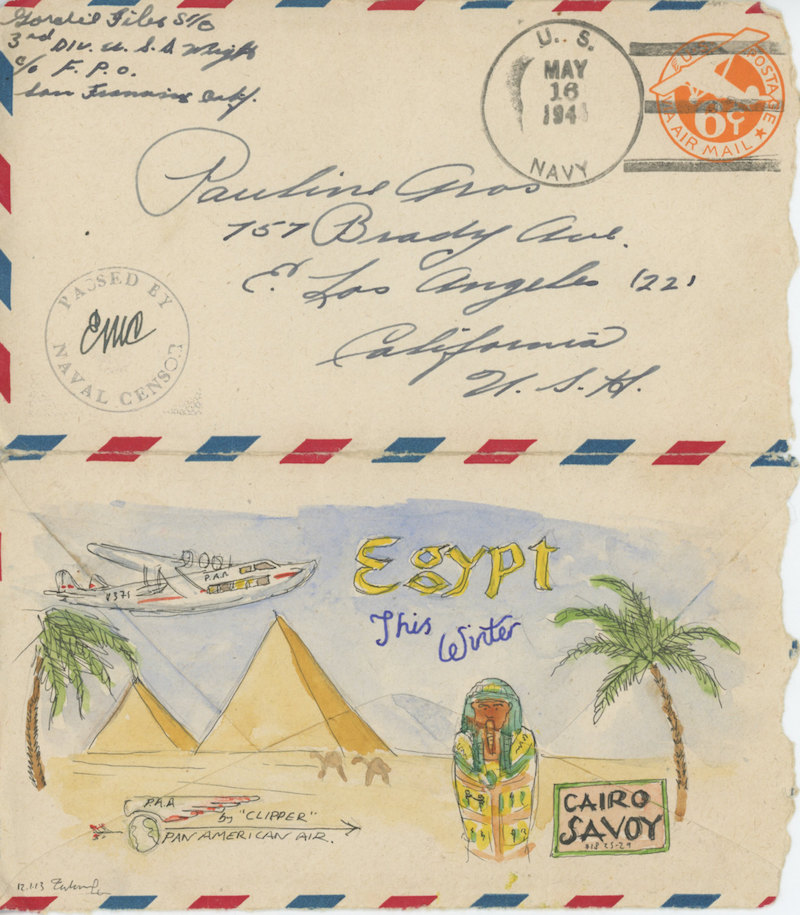 Gordie Files S1/c
3rd Div. U.S.S.
c/o F.P.O.
San Francisco Calif.
U.S.
MAY
16
194
NAVY
U.S. POSTAGE
6¢
AIR MAIL
Pauline Gros
757 Brady Ave.
E. Los Angeles (22)
California
U.S.A.
PASSED BY
EMC
NAVAL CENSOR
Egypt
This
Winter
P.A.A
P.A.A
by "CLIPPER"
PAN AMERICAN AIR.
CAIRO
SAVOY
12.1.13